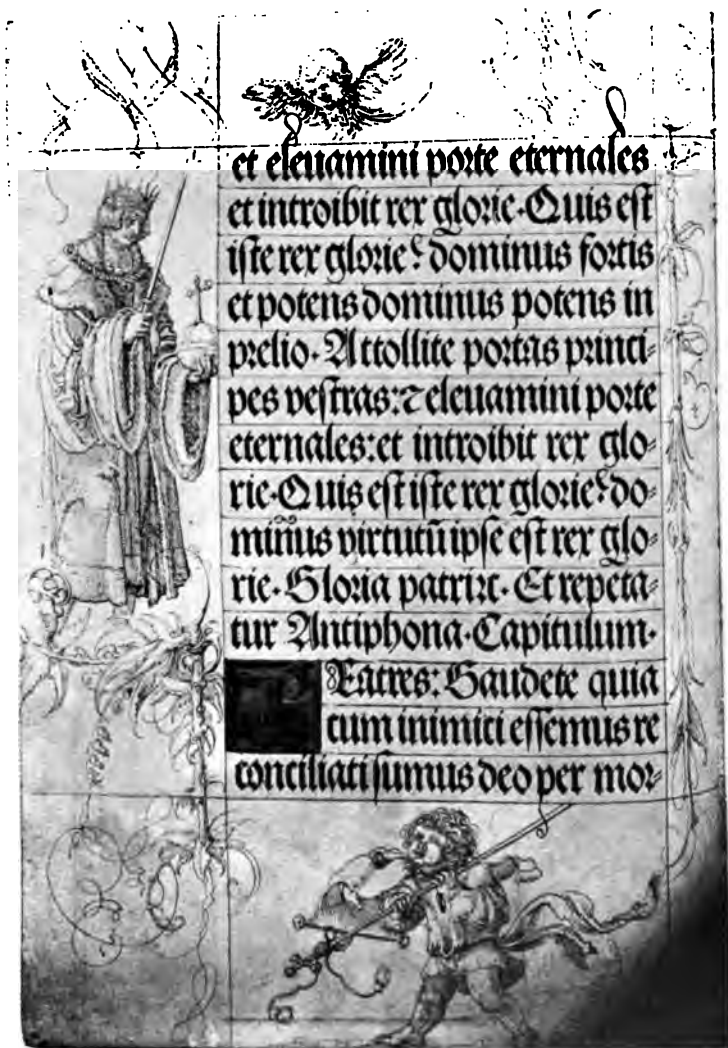 et eleuamini porte eternales
et introibit rex glorie. Quis est
iste rex glorie? dominus fortis
et potens dominus potens in
prelio. Attollite portas princi-
pes vestras: ⁊ eleuamini porte
eternales: et introibit rex glo-
rie. Quis est iste rex glorie? do-
minus virtutū ipse est rex glo-
rie. Gloria patri ⁊c. Et repeta-
tur Antiphona. Capitulum.
Ratres: Gaudete quia
cum inimici essemus re
conciliati sumus deo per mor-